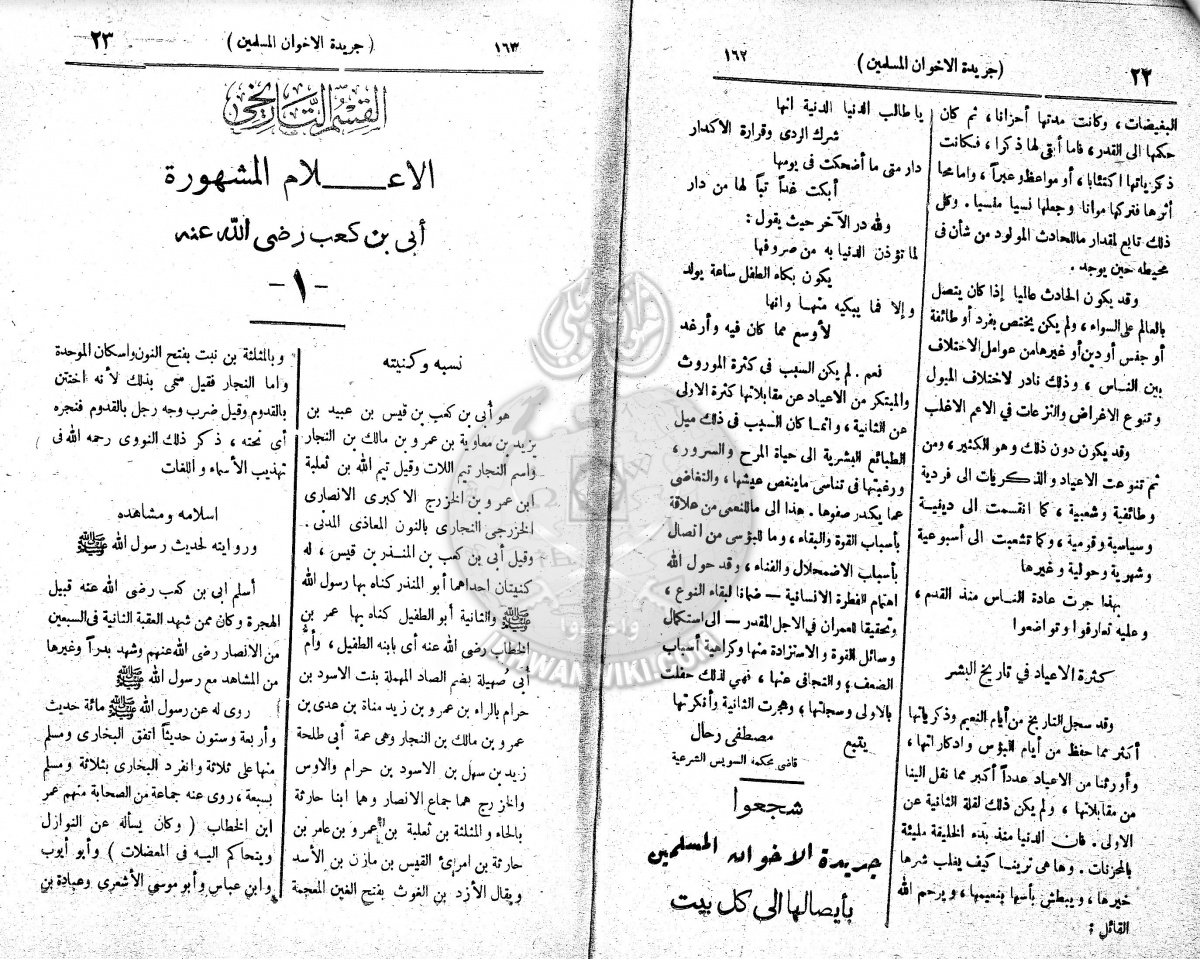 ٢٢
(جريدة الاخوان المسلمين)
١٦٢
البغيضات، وكانت مدتها أحزانا، ثم كان
حكمها الى القدر، فاما أبقى لها ذكرا، فكانت
ذكرياتها اكتئابا، أو مواعظ وعبراً، واما محا
أثرها فتركها مواتا وجعلها نسيا منسيا. وكل
ذلك تابع لمقدار ماللحادث المولود من شأن فى
محيطه حين يوجد.
وقد يكون الحادث عاليا إذا كان يتصل
بالعالم على السواء، ولم يكن يختص بفرد أو طائفة
أو جنس أو دين أو غيرها من عوامل الاختلاف
بين النـاس، وذلك نادر لاختلاف الميول
وتنوع الاغراض والنزعات في الاعم الاغلب
وقد يكون دون ذلك وهو الكثير، ومن
ثم تنوعت الاعياد والذكريات الى فردية
وطائفية وشعبية، كما انقسمت الى دينية
وسياسية وقومية، وكما تشعبت الى أسبوعية
وشهرية وحولية وغيرها
بهذا جرت عادة الناس منذ القدم،
وعليه تعارفوا وتواضعوا
كثرة الاعياد في تاريخ البشر
وقد سجل التاريخ من أيام النعيم وذكرياتها
أكثر مما حفظ من أيام البؤس وادكاراتها،
وأورثنا من الاعياد عدداً أكبر مما نقل الينا
من مقابلاتها، ولم يكن ذلك لقلة الثانية عن
الاولى. فان الدنيا منذ بدء الخليقة مليئة
بالمحزنات. وها هى ترينـا كيف يغلب شرها
خيرها، ويبطش بأسها بنعيمها، ويرحم الله
القائل:
يا طالب الدنيا الدنية انها
شرك الردى وقرارة الاكدار
دار متى ما أضحكت فى يومها
أبكت غداً تباً لها من دار
ولله در الآخر حيث يقول:
لما تؤذن الدنيا به من صروفها
يكون بكاء الطفل ساعة يولد
وإلا فما يبكيه منهـا وانها
لأوسع مما كان فيه وأرغد
نعم. لم يكن السبب فى كثرة الموروث
والمبتكر من الاعياد عن مقابلاتها كثرة الاولى
عن الثانية، وانمـا كان السبب فى ذلك ميل
الطبائع البشرية الى حياة المرح والسرور،
ورغبتها فى تناسى ماينغص عيشها، والتغاضى
عما يكدر صفوها. هذا الى ماللنعمى من علاقة
بأسباب القوة والبقاء، وما للبؤسى من اتصال
بأسباب الاضمحلال والفناء، وقد حول الله
اهتمام الفطرة الانسانية — ضمانا لبقاء النوع،
وتحقيقا للعمران في الاجل المقدر — الى استكمال
وسائل القوة والاستزادة منها وكراهية أسباب
الضعف، والتجافى عنها، فهي لذلك حفلت
بالاولى وسجلتها، وهجرت الثانية وأنكرتها
يتبع مصطفى رحال
قاضى محكمة السويس الشرعية
شجعوا
جريدة الاخوان المسلمين
بأيصالها الى كل بيت
١٦٣
(جريدة الاخوان المسلمين)
٢٣
القسم التاريخى
الاعـــلام المشهورة
أبى بن كعب رضى الله عنه
- ١ -
نسبه وكنيته
هو أبي بن كعب بن قيس بن عبيد بن
يزيد بن معاوية بن عمرو بن مالك بن النجار
واسم النجار تيم اللات وقيل تيم الله بن ثعلبة
ابن عمرو بن الخزرج الاكبرى الانصارى
الخزرجى النجارى بالنون المعاذى المدنى.
وقيل أبي بن كعب بن المنذر بن قيس، له
كنيتان احداهما أبو المنذر كناه بها رسول الله
ﷺ والثانية أبو الطفيل كناه بها عمر بن
الخطاب رضى الله عنه أى بابنه الطفيل، وأمُّ
أبى صُهيلة بضم الصاد المهملة بنت الاسود بن
حرام بالراء بن عمرو بن زيد مناة بن عدى بن
عمرو بن مالك بن النجار وهى عمة أبى طلحة
زيد بن سهل بن الاسود بن حرام والاوس
والخزرج هما جماع الانصار وهما ابنا حارثة
بالحاء والمثلثة بن ثعلبة بن عمرو بن عامر بن
حارثة بن امرئ القيس بن مازن بن الأسد
ويقال الأزد بن الغوث بفتح الغين المعجمة
وبالمثلثة بن نبت بفتح النون واسكان الموحدة
واما النجار فقيل سمى بذلك لأنه اختتن
بالقدوم وقيل ضرب وجه رجل بالقدوم فنجره
أى نحته، ذكر ذلك النووى رحمه الله فى
تهذيب الأسماء واللغات
اسلامه ومشاهده
وروايته لحديث رسول الله ﷺ
أسلم ابى بن كعب رضى الله عنه قبيل
الهجرة وكان ممن شهد العقبة الثانية فى السبعين
من الانصار رضى الله عنهم وشهد بدراً وغيرها
من المشاهد مع رسول الله ﷺ
روى له عن رسول الله ﷺ مائة حديث
وأربعة وستون حديثاً اتفق البخارى ومسلم
منها على ثلاثة وانفرد البخارى بثلاثة ومسلم
بسبعة، روى عنه جماعة من الصحابة منهم عمر
ابن الخطاب (وكان يسأله عن النوازل
ويتحاكم اليه فى المعضلات) وأبو أيوب
وابن عباس وأبو موسى الأشعرى وعبادة بن
IKHWANWIKI.COM